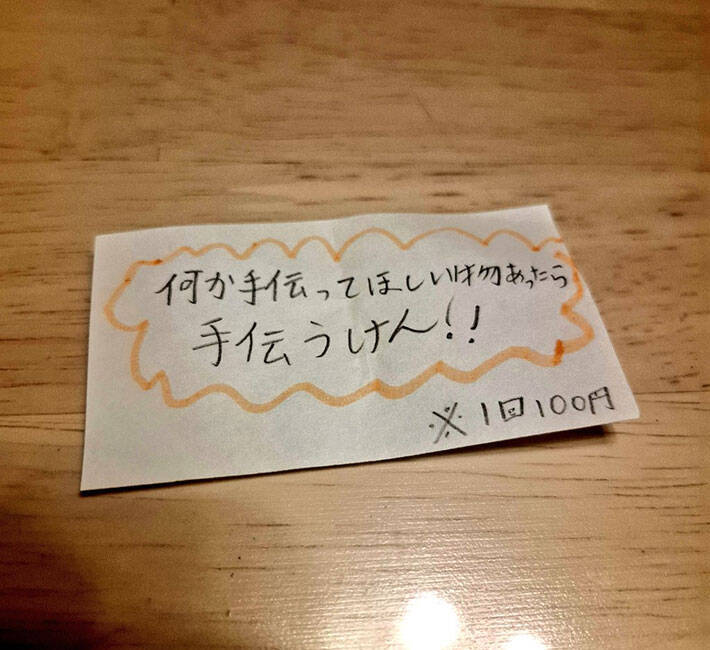 何か手伝ってほしい物あったら
手伝うけん!!
※1回100円